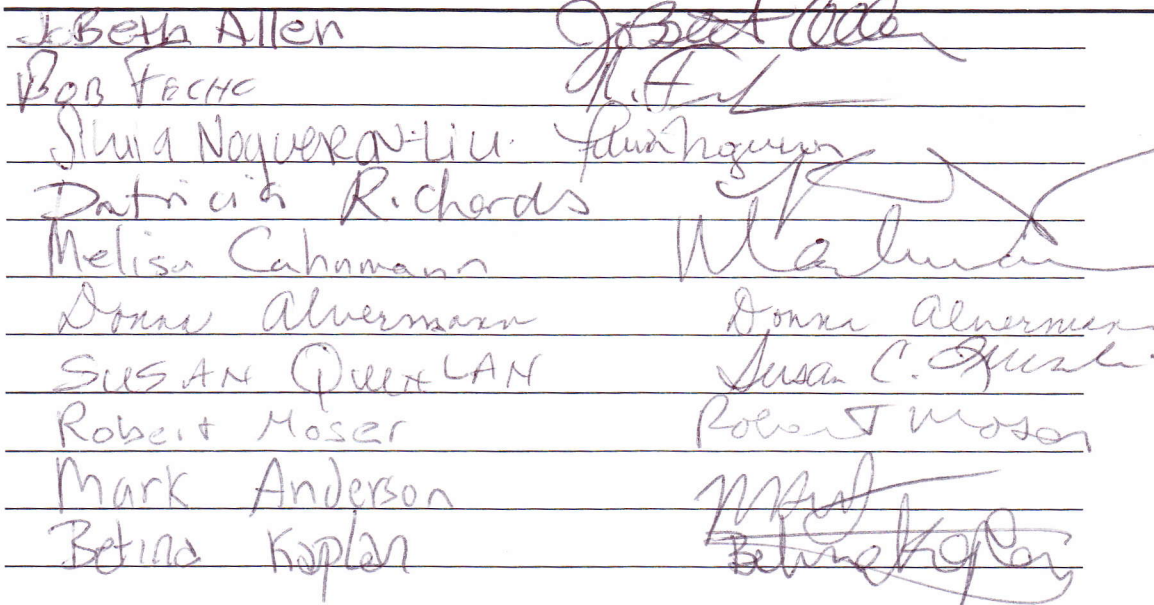 JoBeth Allen JoBeth Allen
Bob Fecho
Silvia Noguerón-Liu Silvia Noguerón
Patricia Richards
Melisa Cahnmann
Donna Alvermann Donna Alvermann
SUSAN QUINLAN Susan C. Quinlan
Robert Moser Robert Moser
Mark Anderson
Betina Kaplan Betina Kaplan